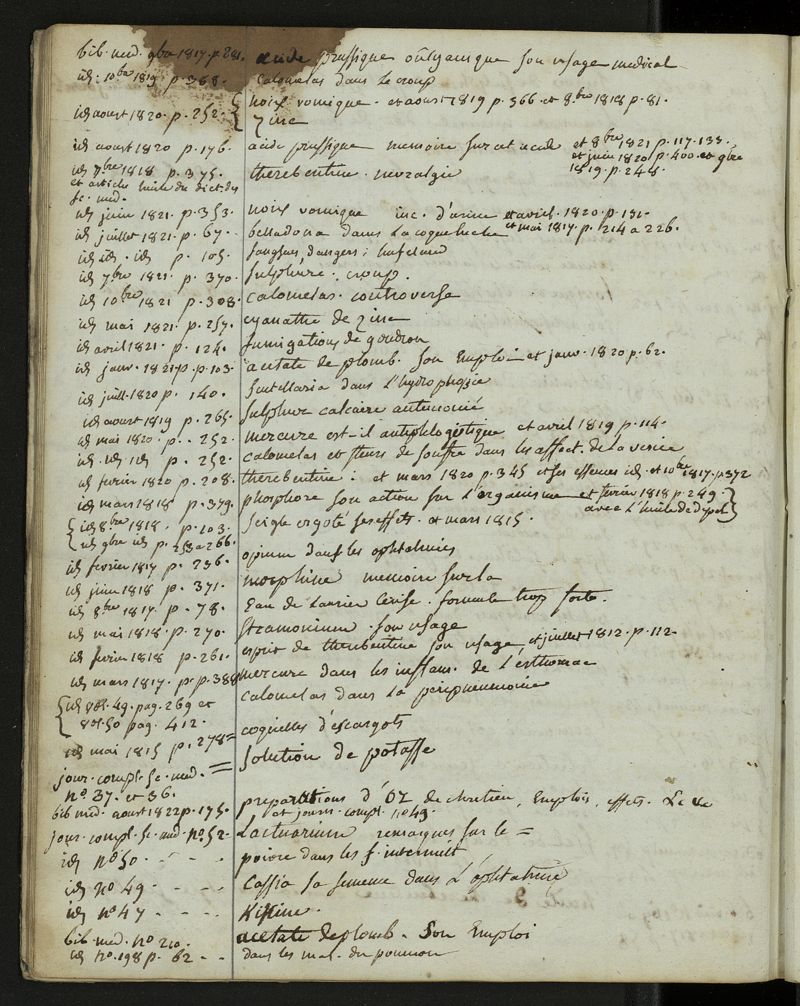 bib. med. 9bre 1817. p. 281. acide prussique son usage medical
id. 10bre 1819. p. 388. Calomelas dans le croup
id aoust 1820. p. 252. { noix vomique. et aoust 1819 p. 366 et 8bre 1818 p. 81.
Zinc
id aoust 1820 p. 176. acide prussique memoire sur cet acide et 8bre 1821 p. 117. 133.
et juin 1820 p. 400. et 9bre
id 7bre 1818 p. 375. therebentine. nevralgie 1819. p. 248.
et article huile du dict. des
sc. med.
id juin 1821. p. 353. noix vomique inc. d'urine et avril. 1820. p. 131.
id juillet 1821. p. 67. belladona dans la coqueluche et mai 1817. p. 214 a 226.
id id. id p. 105. sangsues, dangers; hufeland
id 7bre 1821. p. 370. sulphure. croup.
id 10bre 1821 p. 308. Calomelas. controverse
id mai 1821. p. 257. cyanathe de Zinc
id avril 1821. p. 124. fumigations de goudron
id janv. 1821 p. p. 103. acetate de plomb. son Emploi et janv. 1820 p. 62.
id juill. 1820 p. 140. Scutellaria dans l'hydrophobie
id aoust 1819 p. 265. Sulphure calcaire antimonié
id mai 1820. p. 252. mercure est-il antiphlogistique et avril 1819 p. 114.
id. id id p. 252. calomelas et fleurs de souffre dans les affect. de la vessie
id fevrier 1820 p. 208. therebentine: et mars 1820 p. 345 et ses effences id. et 10bre 1817. p. 372
id mars 1818 p. 379. phosphore son action sur l'organisme et fevrier 1818 p. 249. }
avec l'huile de dypel }
{ id 8bre 1818. p. 103. seigle ergoté ses effets. et mars 1815.
{ id 9bre id p. 253 a 266.
id fevrier 1817 p. 236. opium dans les ophtalmies
id juin 1818 p. 371. morphine memoire sur la
id 8bre 1817. p. 78. Eau de Laurier Cerise. formule trop forte.
id mai 1818. p. 270. Stramonium. son usage
id fevrier 1818 p. 261. esprit de therebentine son usage, et juillet 1812. p. 112.
id mars 1817. p. p. 388 mercure dans les inflam. de l'esthomac
{ id vol. 49. pag. 269 et calomelas dans la peripneumonie
{ vol. 50 pag. 412.
id mai 1815 p. 278 = coquilles d'escargots
jour. compl. sc. med. = solution de potasse
no. 37. et 36.
bib med. aoust 1822 p. 175. preparations d'or de chretien, Emplois, effets.
et journ. compl. no 43.
jour. compl. sc. med no. 52. Lactuarium remarques sur le =
id no 50. - - - poivre dans les f. intermitt
id no 49 - - - Cassia sa semence dans l'ophtalmie
id no 47 - - - Kinine.
bib. med. no 210. acetate de plomb. son Emploi
id no. 198 p. 62 - - dans les mal. du poumon